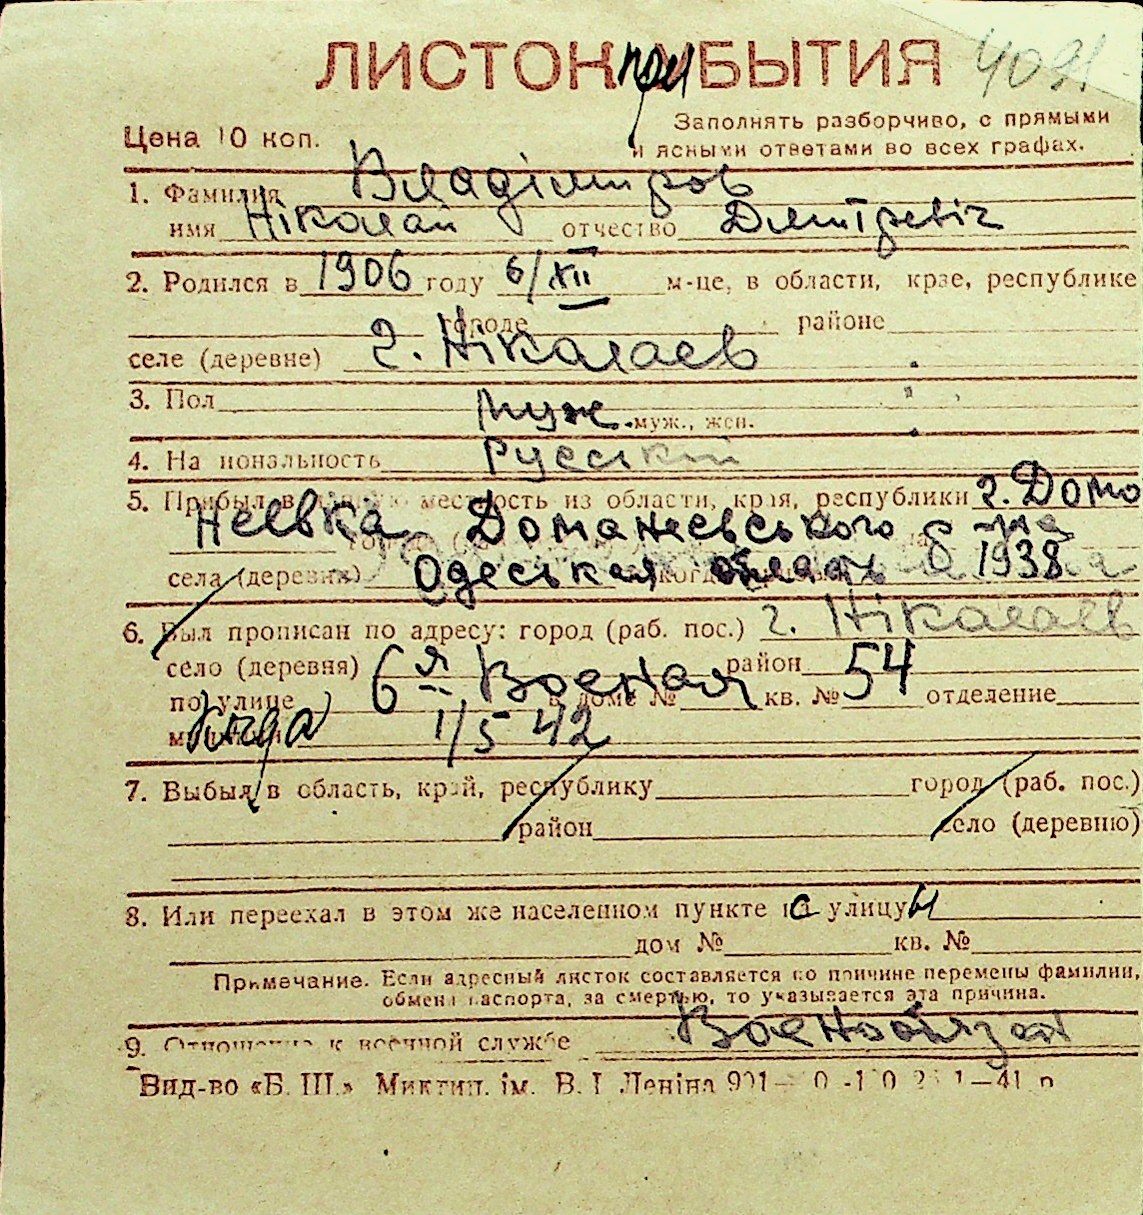 ЛИСТОК при БЫТИЯ 4091
Цена 10 коп. Заполнять разборчиво, с прямыми
и ясными ответами во всех графах.
1. Фамилия Владіміров
имя Ніколай отчество Дмитревіч
2. Родился в 1906 году 6/XII м-це, в области, крае, республике
городе районе
селе (деревне) г. Нікалаев
3. Пол муж. муж., жен.
4. Национальность Русский
5. Прибыл в данную местность из области, края, республики г. Дома
неевка Доманеевського р-на
села (деревни) Одеськая область в 1938
6. Был прописан по адресу: город (раб. пос.) г. Нікалаев
село (деревня) 6я Военая район 54
по улице в доме № кв. № отделение
когда 1/5 42
7. Выбыл в область, край, республику город (раб. пос.)
район село (деревню)
8. Или переехал в этом же населенном пункте с улицы
дом № кв. №
Примечание. Если адресный листок составляется по причине перемены фамилии,
обмена паспорта, за смертью, то указывается эта причина.
9. Отношение к военной службе Военообязан
Вид-во «Б. Ш.» Миктип. ім. В. І Леніна